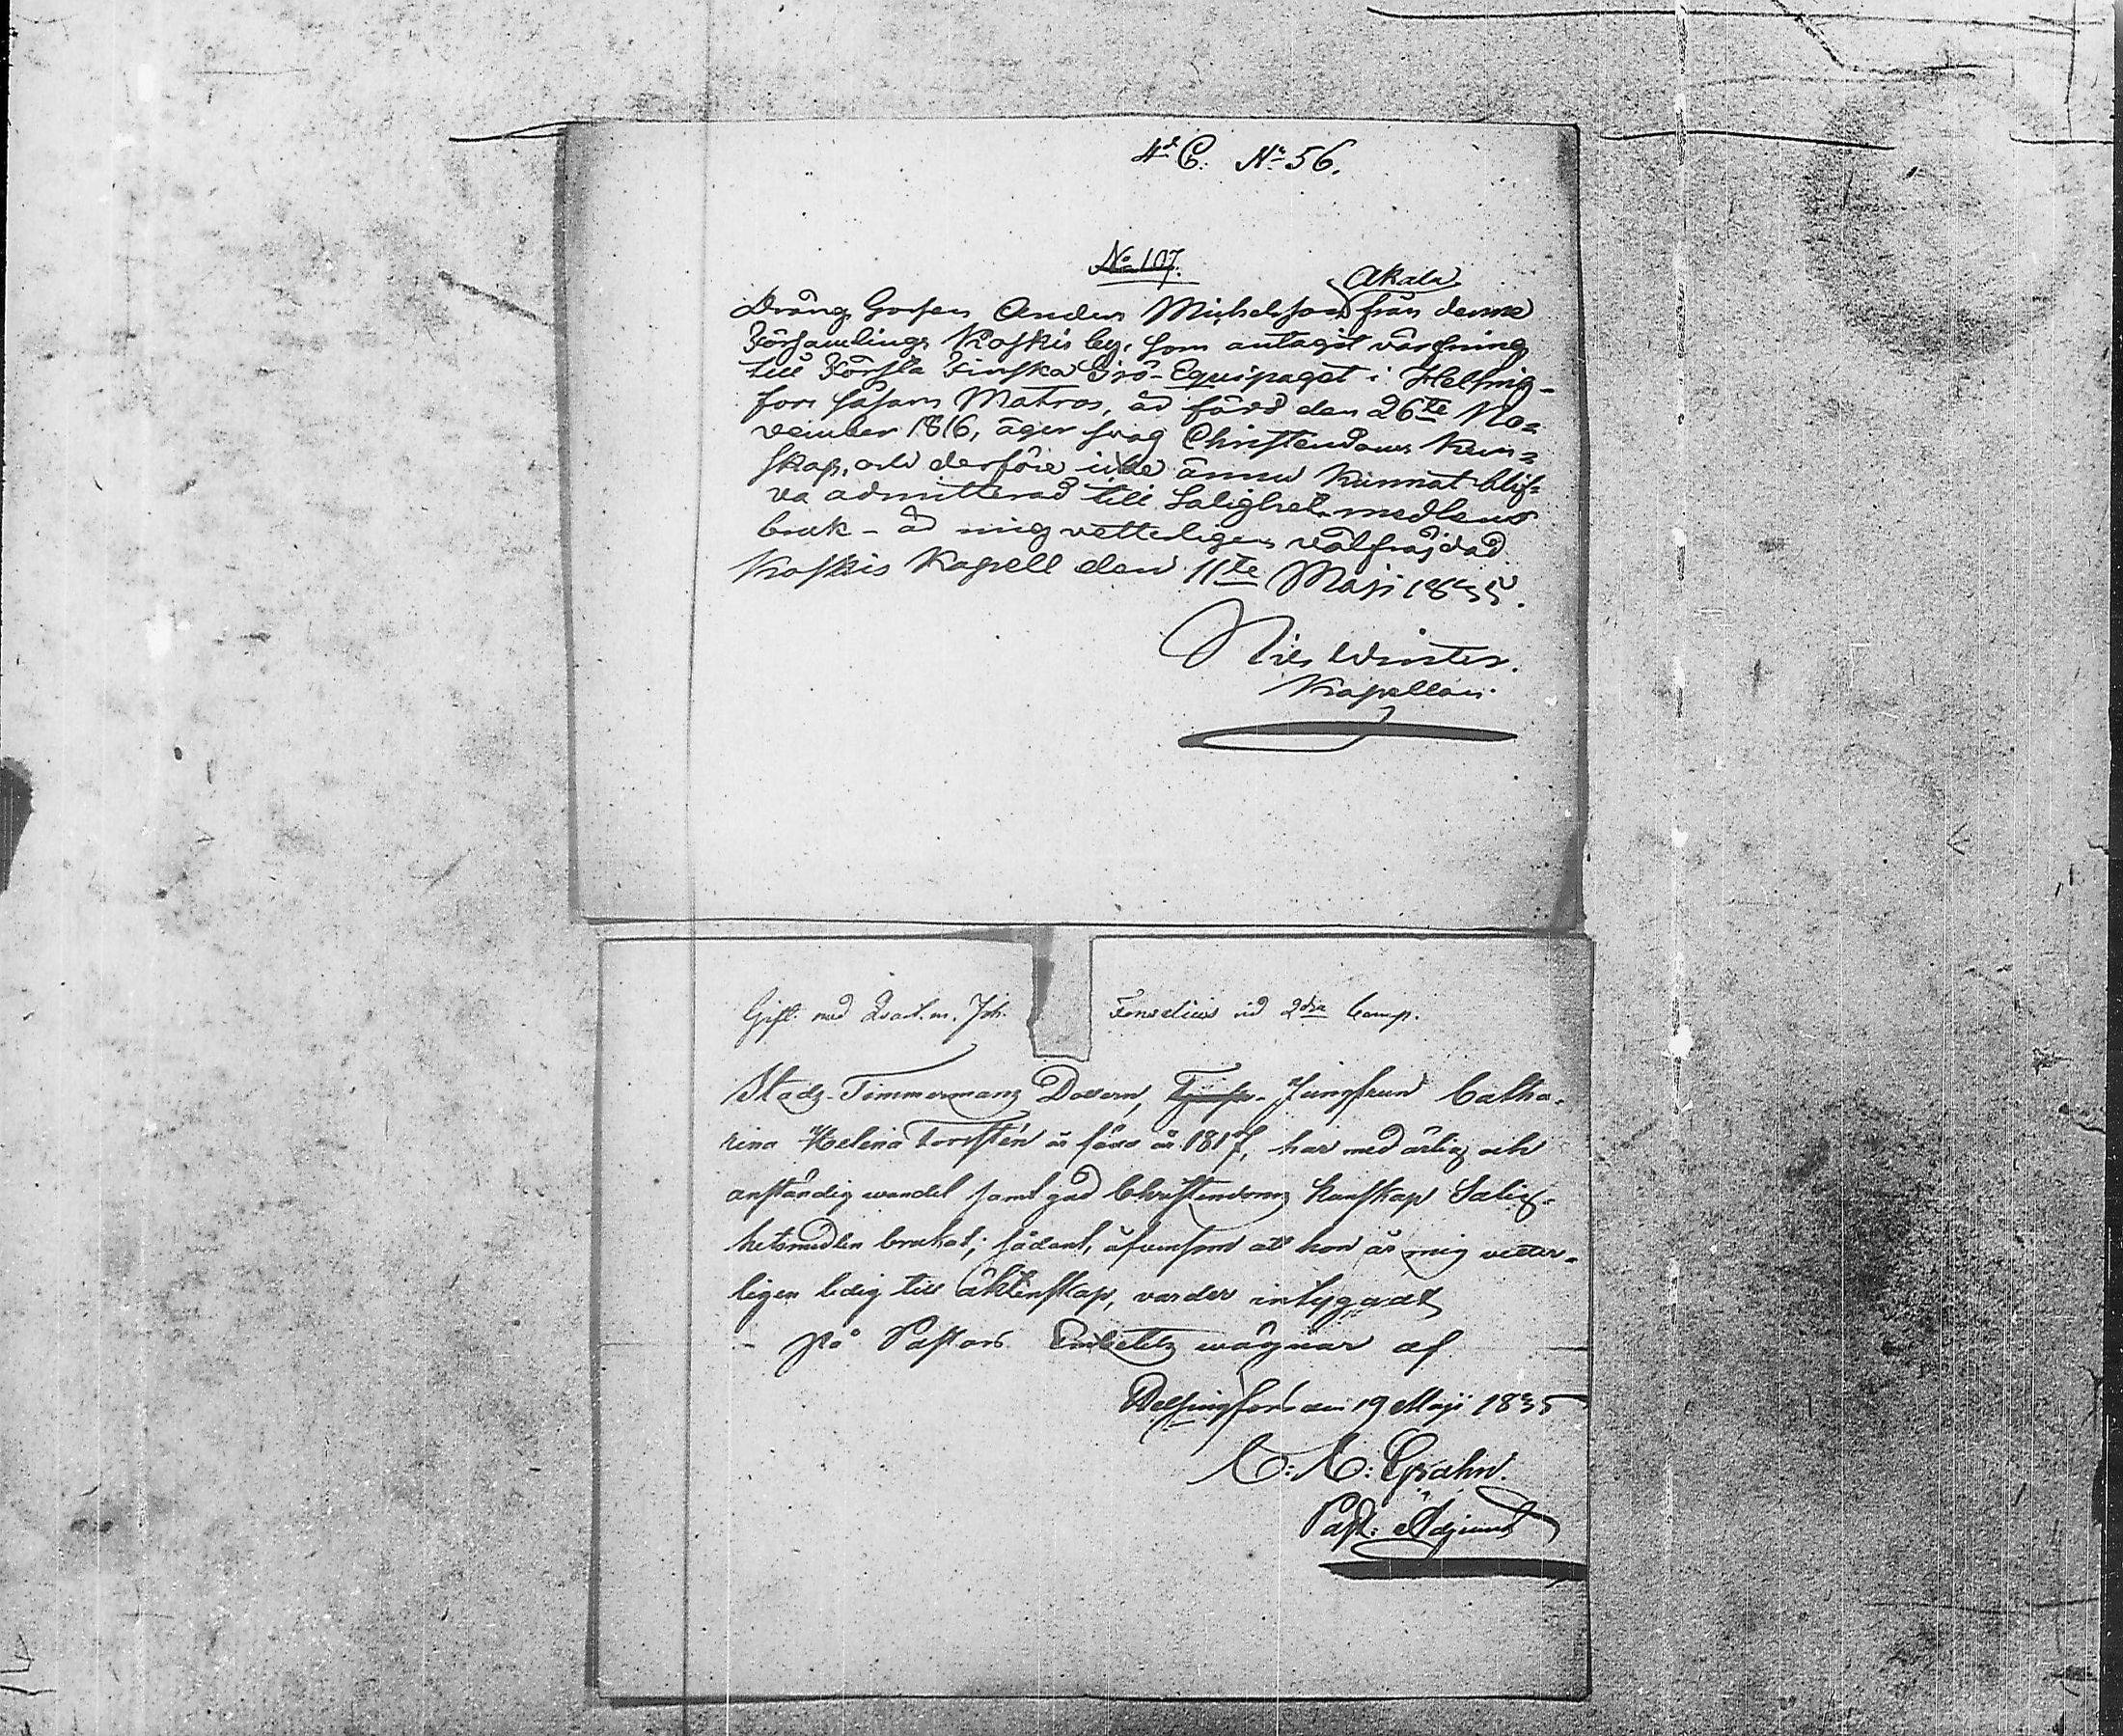 4de C. No 56.
No 107.
Akala
Dräng Gossen Anders Michelsson från denne
Församlings Koskis by, som antagit värfning
till Första Finska Sjö-Equipaget i Helsing-
fors såsom Matros, är född den 26te No=
vember 1816, äger svag Christendoms Kun=
skap, och derföre icke ännu kunnat blif=
va admitterad till Salighets medlens
bruk - är mig vetterligen välfräjdad.
Koskis Kapell den 11te Maji 1835.
Nils Winter.
Kapellan.
Gift med Quart.m. Joh. Fonselius vid 2dra Comp.
Stads-Timmermans Dottern, Jungfrun Catha-
rina Helena Torstén är född år 1817, har med ärlig och
anständig wandel samt god Christendoms Kunskap Salig-
hetsmedlen brukat; sådant, äfvensom att hon är mig vetter-
ligen ledig till äktenskap, varder intygadt
på Pastors Embetets wägnar af
Helsingfors den 19 Maji 1835
C: C: Grahn.
Past: Adjunct